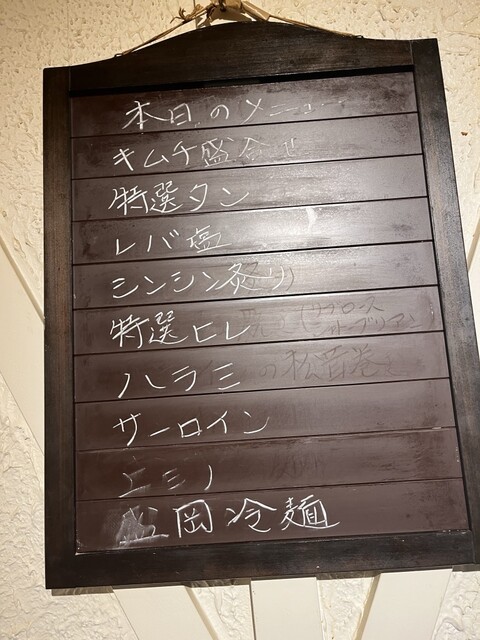 本日のメニュー
キムチ盛合せ
特選タン
レバ塩
シンシン炙り
特選ヒレ
ハラミ
サーロイン
エミノ
盛岡冷麺